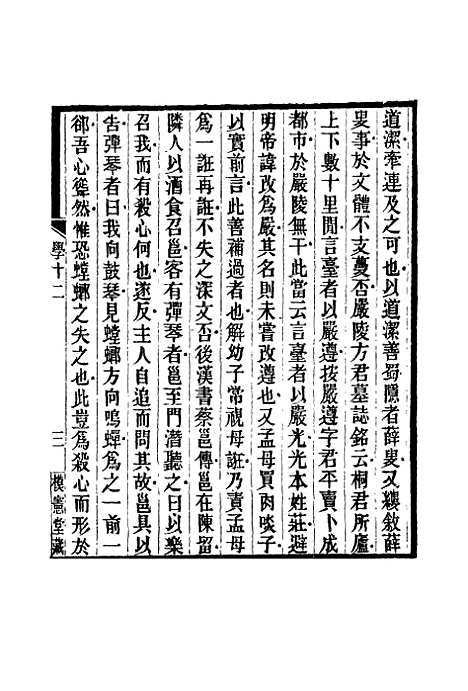 道潔牽連及之可也以道潔善蜀隱者薛叟又縷敘薛
叟事於文體不支蔓否嚴陵方君墓誌銘云桐君所廬
上下數十里閒言臺者以嚴遵按嚴遵字君平賣卜成
都市於嚴陵無干此當云言臺者以嚴光光本姓莊避
明帝諱改為嚴其名則未嘗改遵也又孟母買肉啖子
以實前言此善補過者也解幼子常視母誑乃責孟母
為一誑再誑不失之深文否後漢書蔡邕傳邕在陳留
隣人以酒食召邕客有彈琴者邕至門潛聽之曰以樂
召我而有殺心何也遂反主人自追而問其故邕具以
告彈琴者曰我向鼓琴見螳螂方向鳴蟬為之一前一
郤吾心聳然惟恐螳螂之失之也此豈為殺心而形於
學十二
三
樸憙堂藏